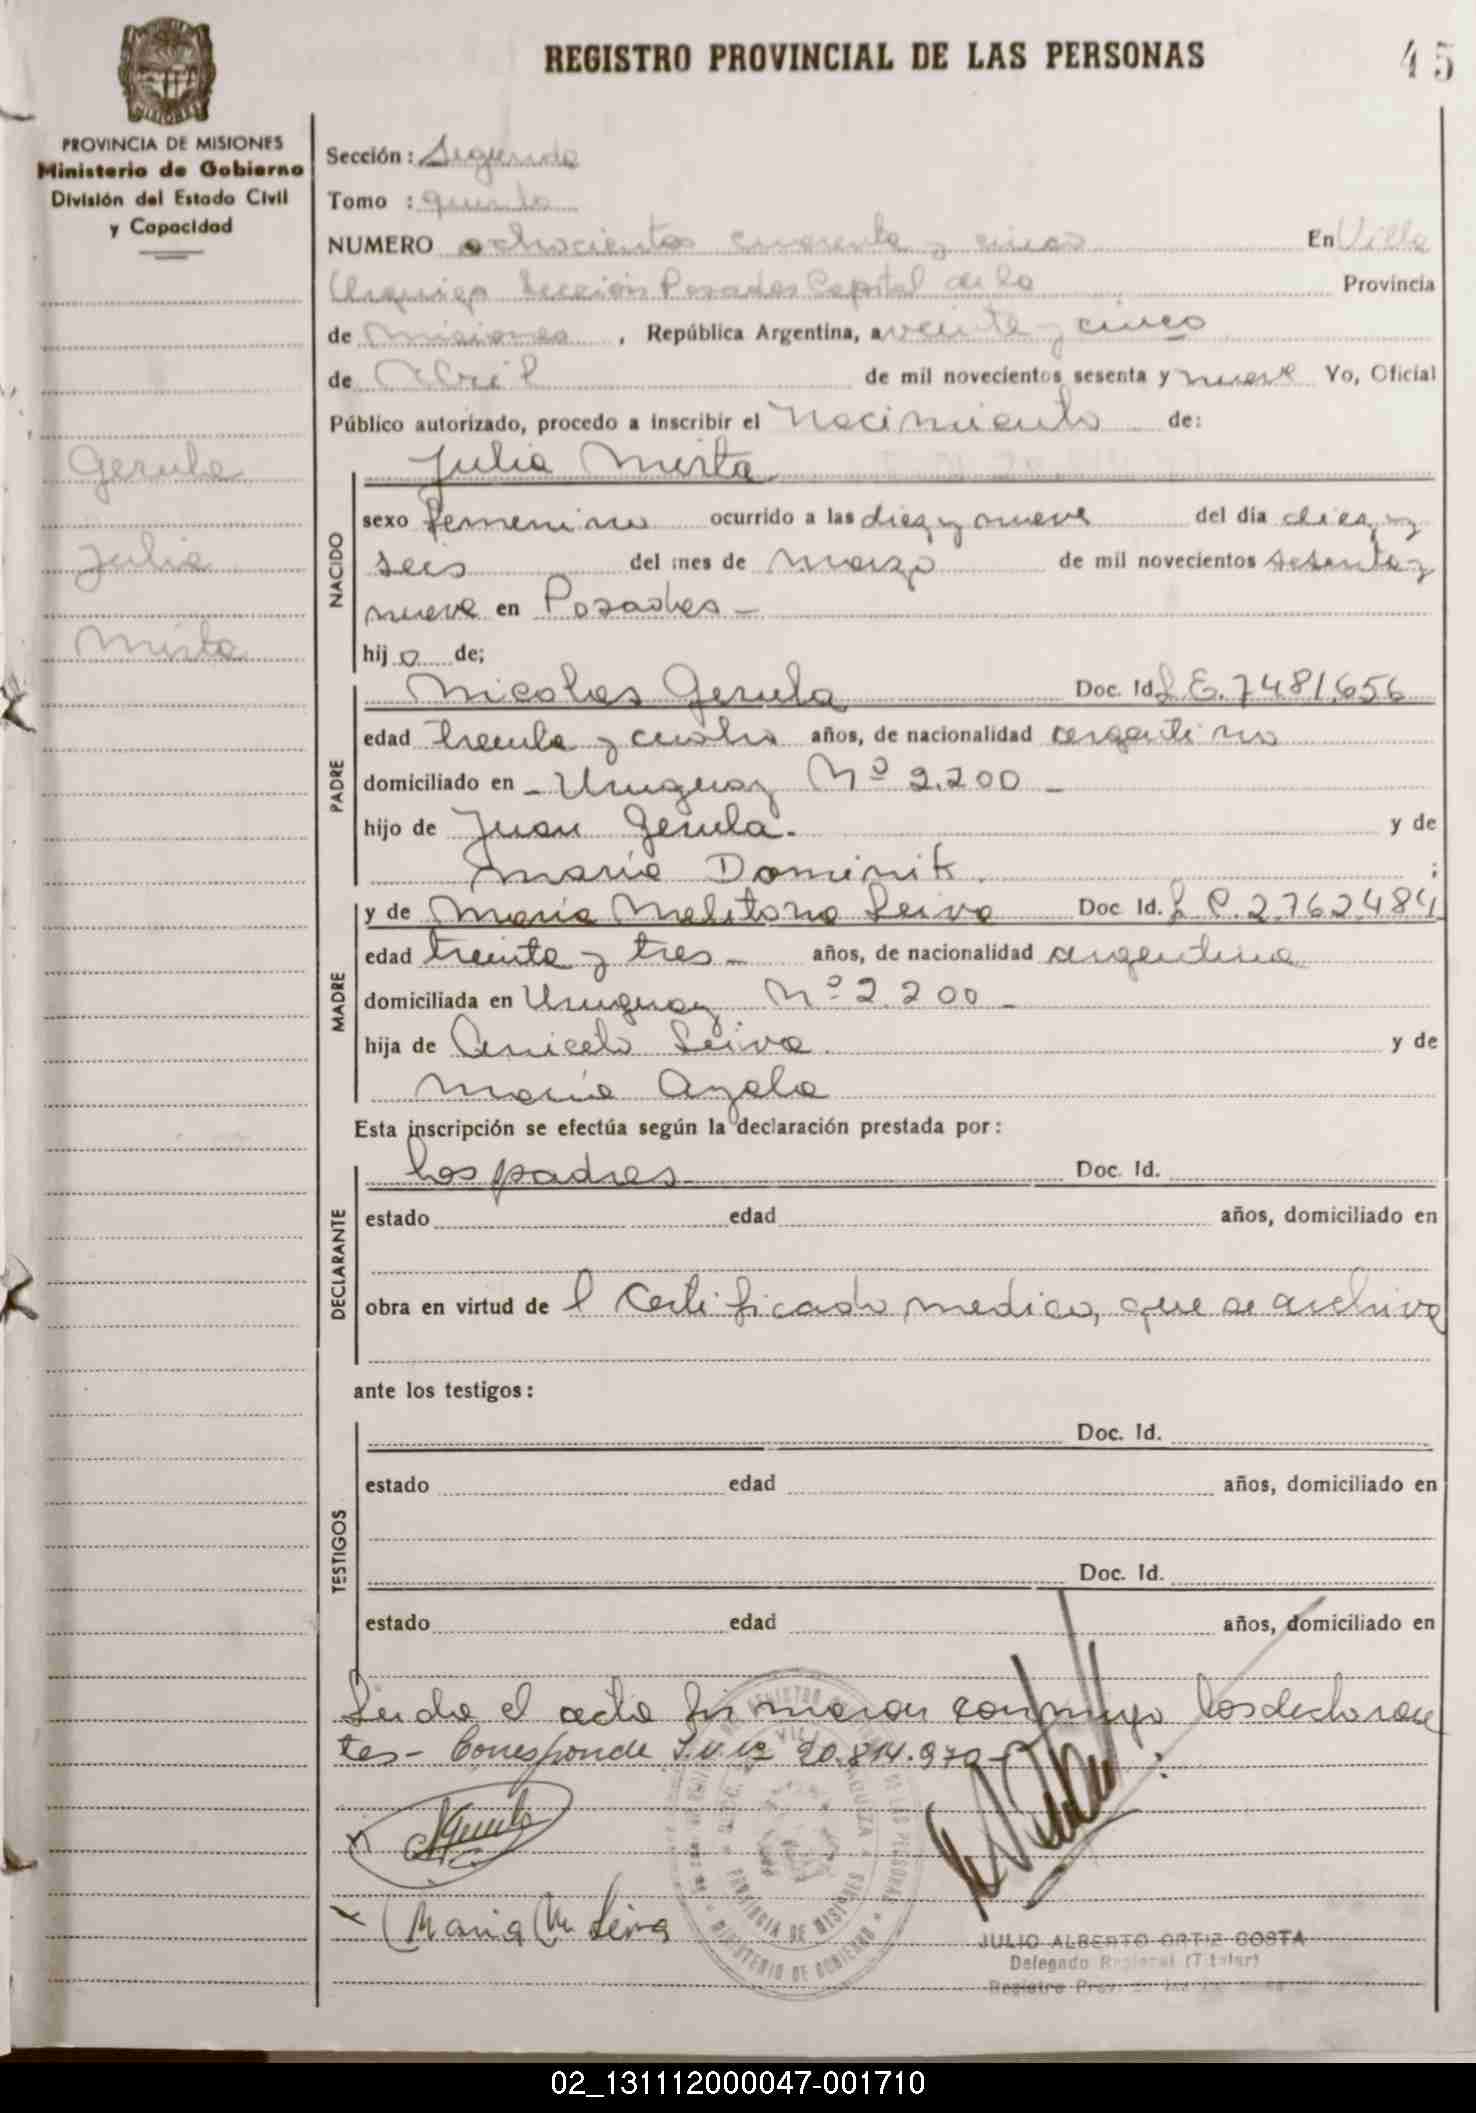 REGISTRO PROVINCIAL DE LAS PERSONAS
45
MISIONES
PROVINCIA DE MISIONES
Ministerio de Gobierno
División del Estado Civil
y Capacidad
Gerula
Julia
Mirta
Sección: Segunda
Tomo : quinto
NUMERO ochocientos cuarenta y cinco En Villa
Urquiza Sección Posadas Capital de la Provincia
de Misiones, República Argentina, a veinte y cinco
de Abril de mil novecientos sesenta y nueve Yo, Oficial
Público autorizado, procedo a inscribir el Nacimiento de:
Julia Mirta
NACIDO
sexo femenino ocurrido a las diez y nueve del día diez y
seis del mes de marzo de mil novecientos sesenta y
nueve en Posadas -
hij a de;
PADRE
Nicolas Gerula Doc. Id. L.E. 7481.656
edad treinta y cuatro años, de nacionalidad argentino
domiciliado en - Uruguay Nº 2.200 -
hijo de Juan Gerula. y de
María Dominik. ;
MADRE
y de María Melitona Leiva Doc. Id. L.C. 2.762.484
edad treinta y tres - años, de nacionalidad argentina
domiciliada en Uruguay Nº 2.200 -
hija de Aniceto Leiva. y de
María Ayala
Esta inscripción se efectúa según la declaración prestada por:
DECLARANTE
Los padres Doc. Id.
estado edad años, domiciliado en
obra en virtud de l certificado medico, que se archiva
ante los testigos:
TESTIGOS
Doc. Id.
estado edad años, domiciliado en
Doc. Id.
estado edad años, domiciliado en
Leida el acta firmaron conmigo los declaran
tes - Corresponde I.U. Nº 20.814.979 -
x Maria M. Leiva
PROVINCIA DE MISIONES
MINISTERIO DE GOBIERNO
JULIO ALBERTO ORTIZ COSTA
Delegado Regional (Titular)
Registro Prov. de las
02_131112000047-001710